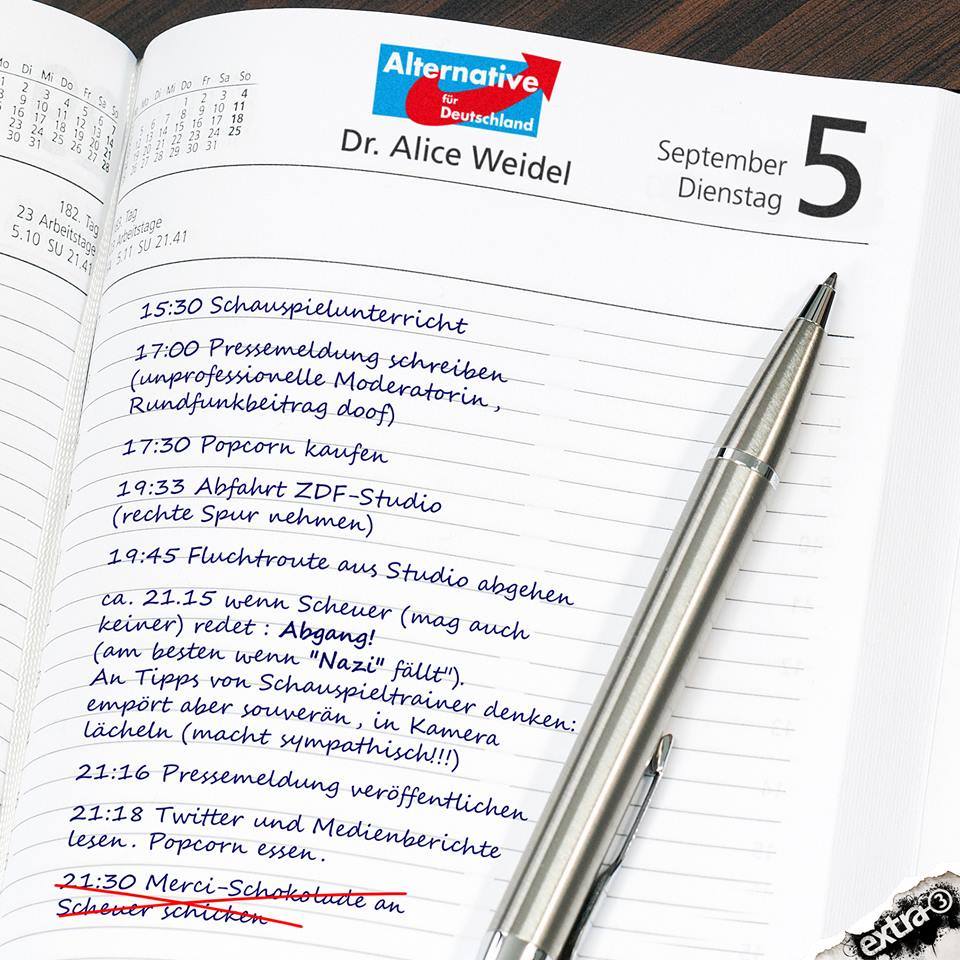 Di Mi Do Fr Sa So
Mo Di Mi Do Fr Sa So
1 2 3 4
5 6 7 8 9 10 11
12 13 14 15 16 17 18
19 20 21 22 23 24 25
26 27 28 29 30 31
Alternative
für
Deutschland
Dr. Alice Weidel
September
Dienstag
5
182. Tag
23 Arbeitstage
5.10 SU 21.41
Tag
Arbeitstage
5.11 SU 21.41
15:30 Schauspielunterricht
17:00 Pressemeldung schreiben
(unprofessionelle Moderatorin,
Rundfunkbeitrag doof)
17:30 Popcorn kaufen
19:33 Abfahrt ZDF-Studio
(rechte Spur nehmen)
19:45 Fluchtroute aus Studio abgehen
ca. 21.15 wenn Scheuer (mag auch
keiner) redet: Abgang!
(am besten wenn "Nazi" fällt").
An Tipps von Schauspieltrainer denken:
empört aber souverän, in Kamera
lächeln (macht sympathisch!!!)
21:16 Pressemeldung veröffentlichen
21:18 Twitter und Medienberichte
lesen. Popcorn essen.
21:30 Merci-Schokolade an
Scheuer schicken
extra 3